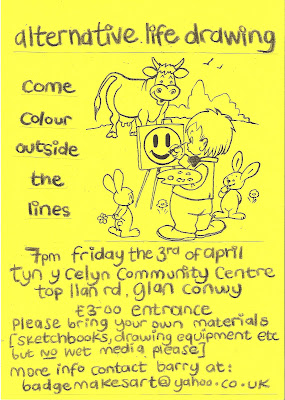 alternative life drawing
come
colour
outside
the
lines
7pm friday the 3rd of april
tyn y celyn community centre
top llan rd, glan conwy
£3-00 entrance
please bring your own materials
[sketchbooks, drawing equipment etc
but no wet media please]
more info contact barry at:
badgemakesart@yahoo.co.uk